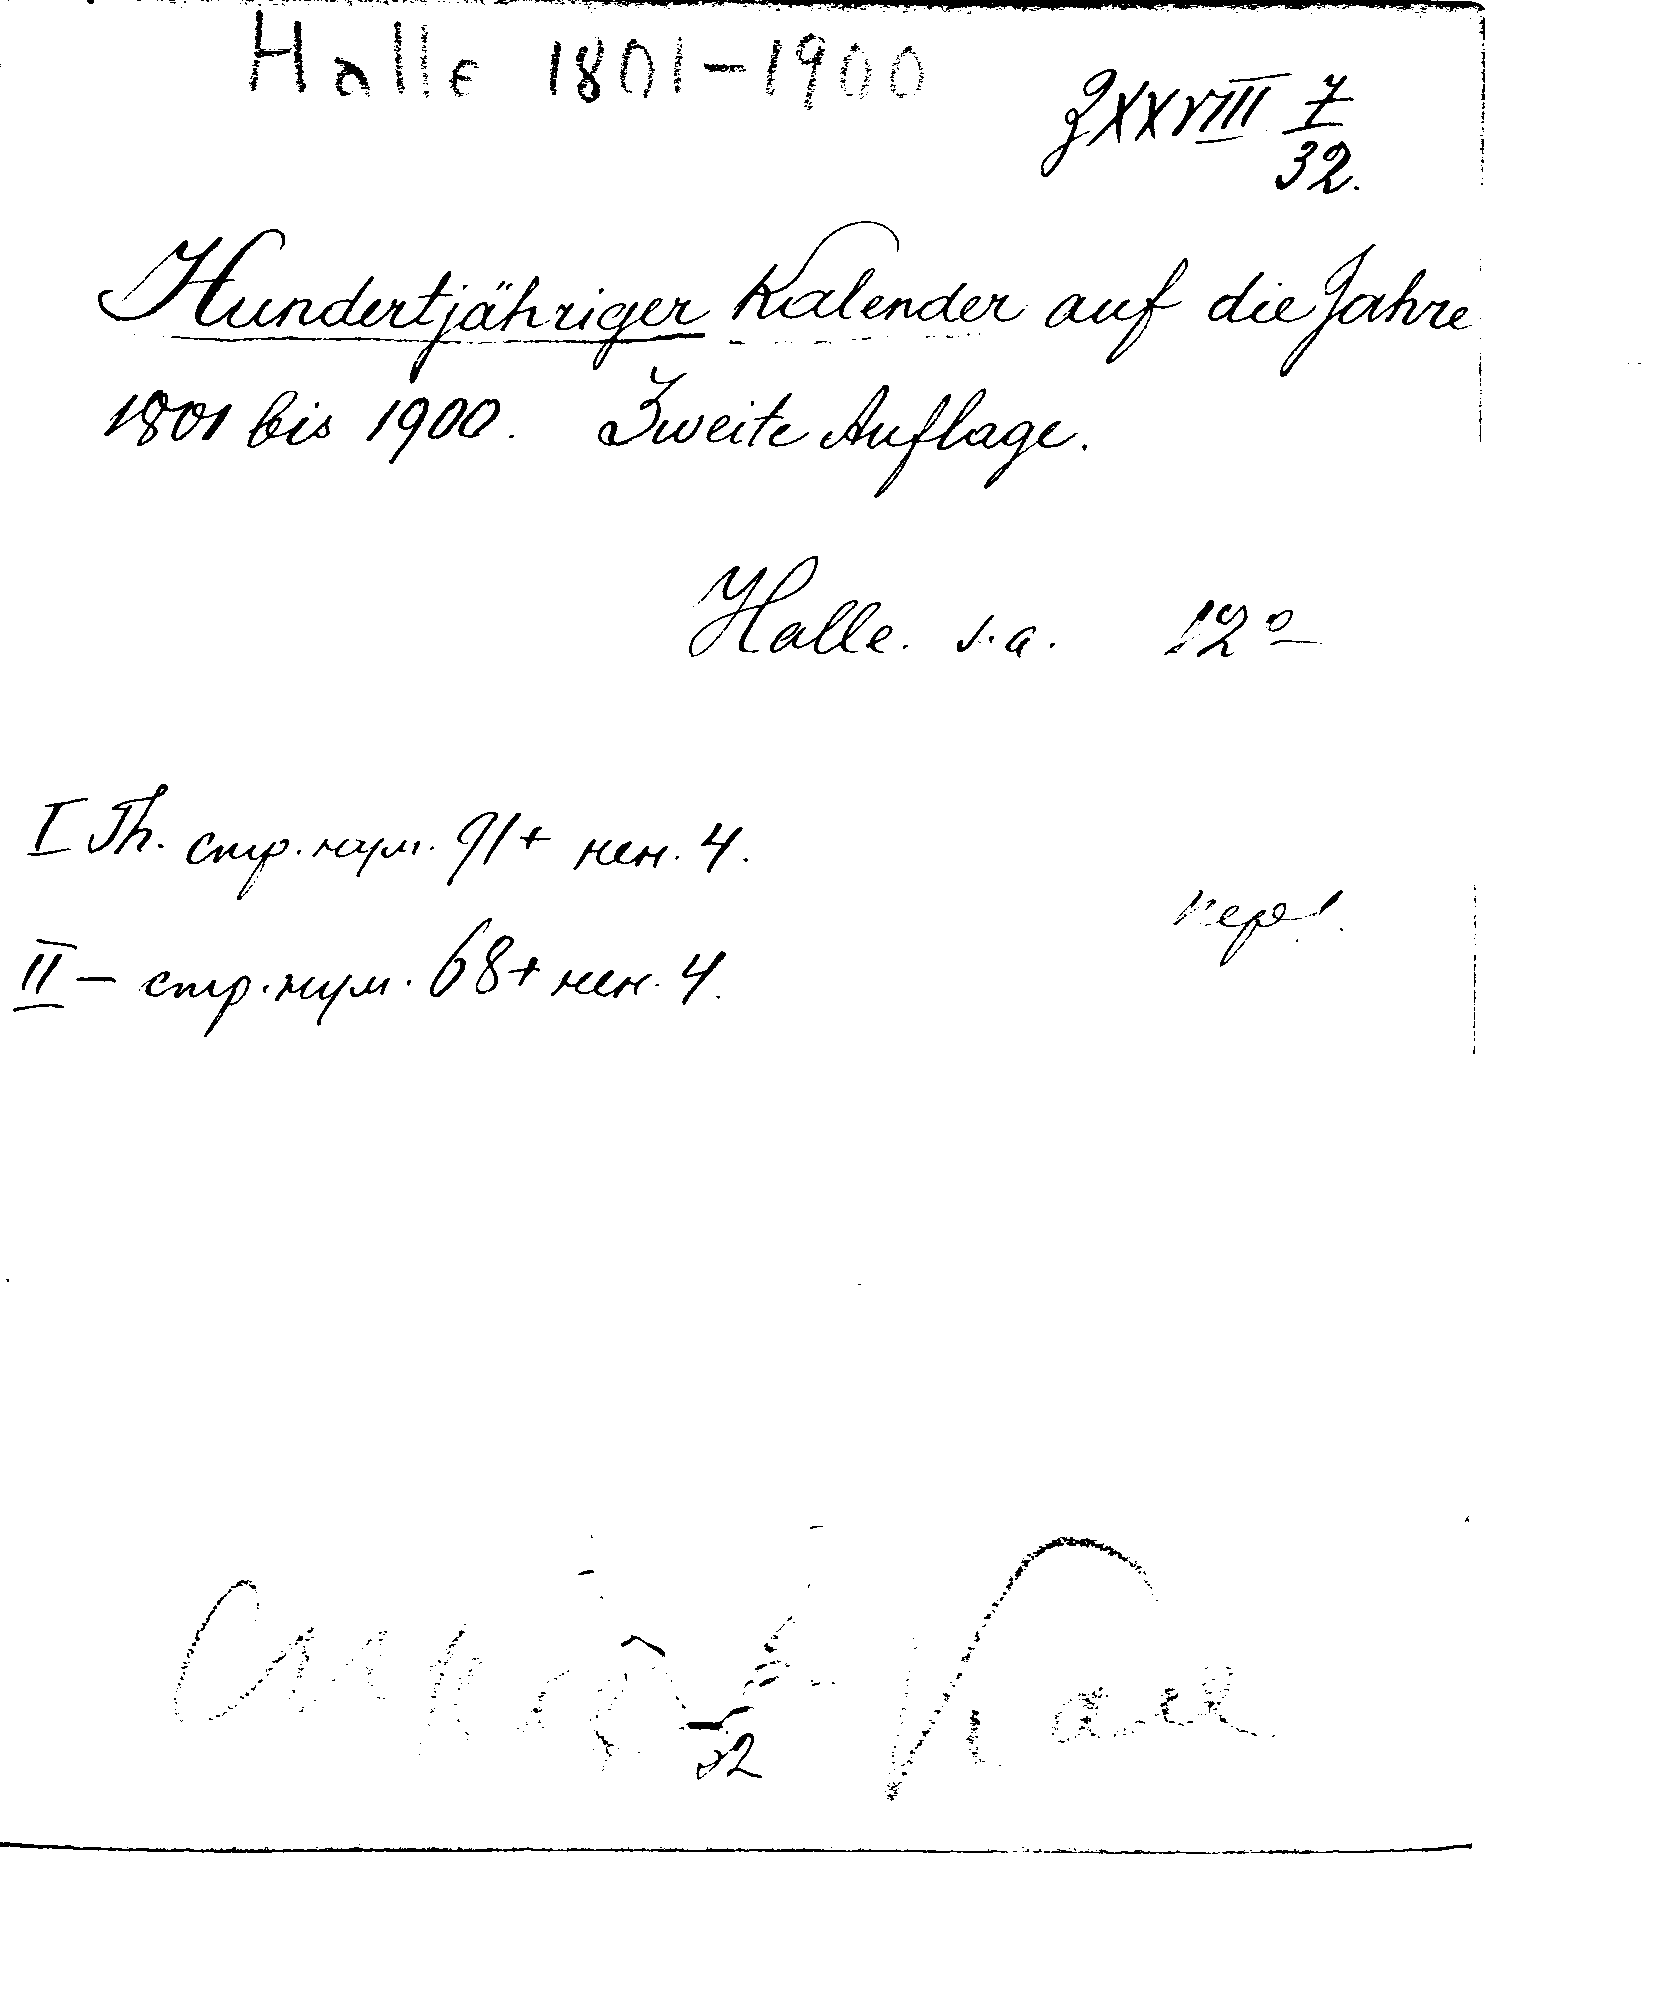 Halle 1801-1900
ZXXVIII 7/32.
Hundertjähriger Kalender auf die Jahre
1801 bis 1900. Zweite Auflage.
Halle. s.a. 12º
I Th. стр. нум. 91 + нен. 4.
II — стр. нум. 68 + нен. 4.
32